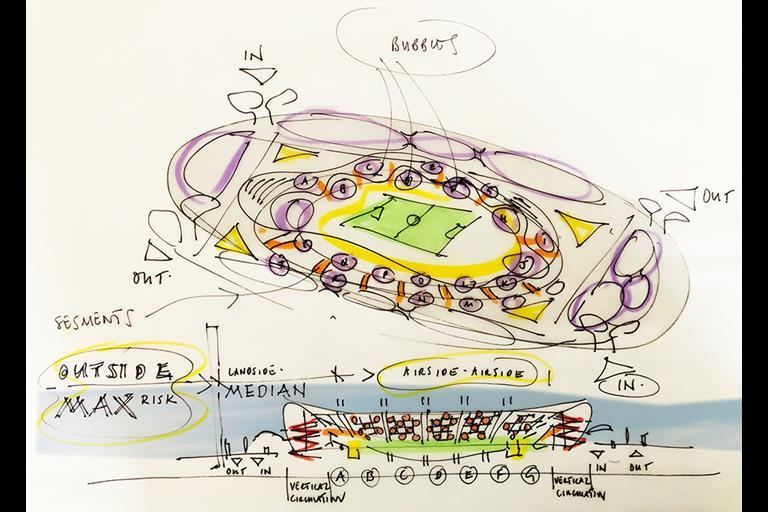 BUBBLES
IN
OUT
OUT.
SEGMENTS
OUTSIDE
MAX RISK
LANDSIDE.
MEDIAN
AIRSIDE-AIRSIDE
IN.
OUT IN
IN OUT
VERTICAL
CIRCULATION
A B C D E F G
VERTICAL
CIRCULATION